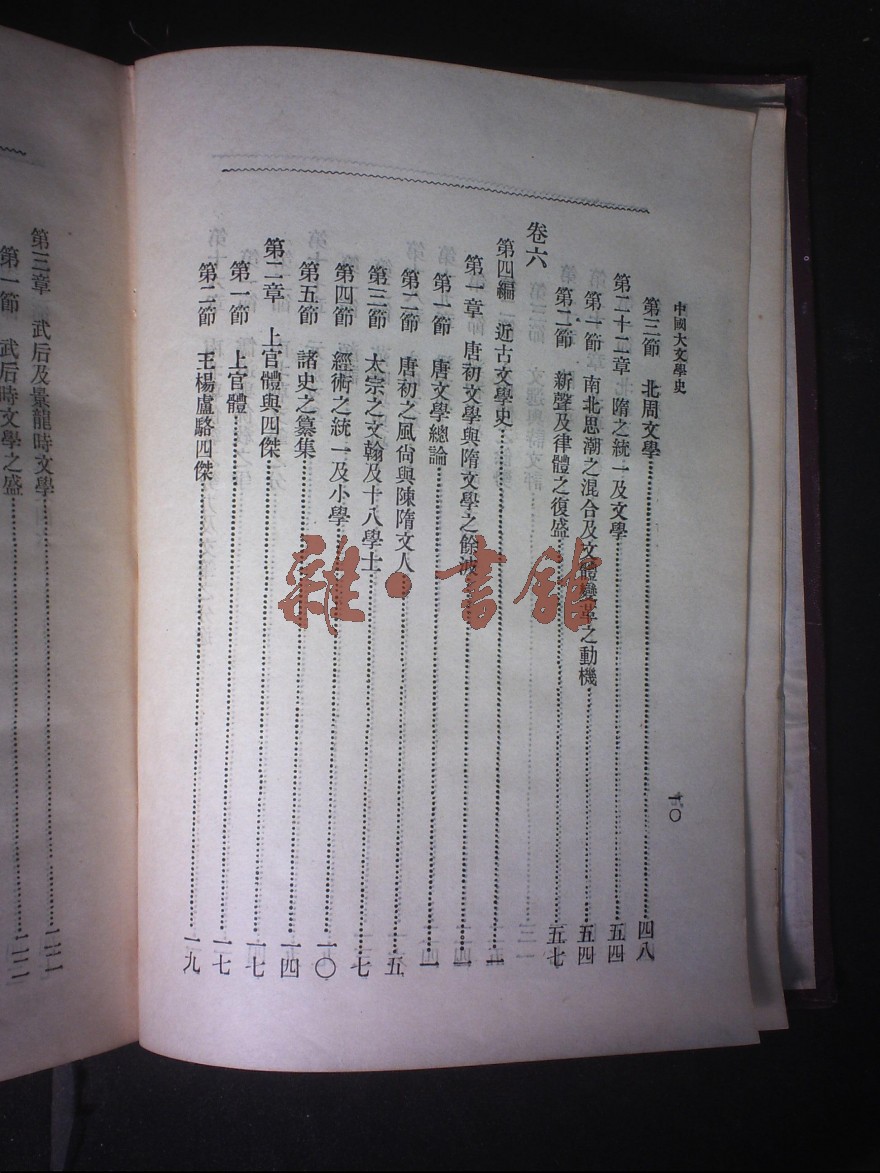 中國大文學史
一〇
第三節　北周文學……四八
第二十二章　隋之統一及文學……五四
第一節　南北思潮之混合及文體變革之動機……五四
第二節　新聲及律體之復盛……五七
卷六
第四編　近古文學史……一
第一章　唐初文學與隋文學之餘波……一
第一節　唐文學總論……一
第二節　唐初之風尚與陳隋文人……五
第三節　太宗之文翰及十八學士……七
第四節　經術之統一及小學……一〇
第五節　諸史之纂集……一四
第二章　上官體與四傑……一七
第一節　上官體……一七
第二節　王楊盧駱四傑……一九
第三章　武后及景龍時文學……二二
第一節　武后時文學之盛……二二
雜·書館